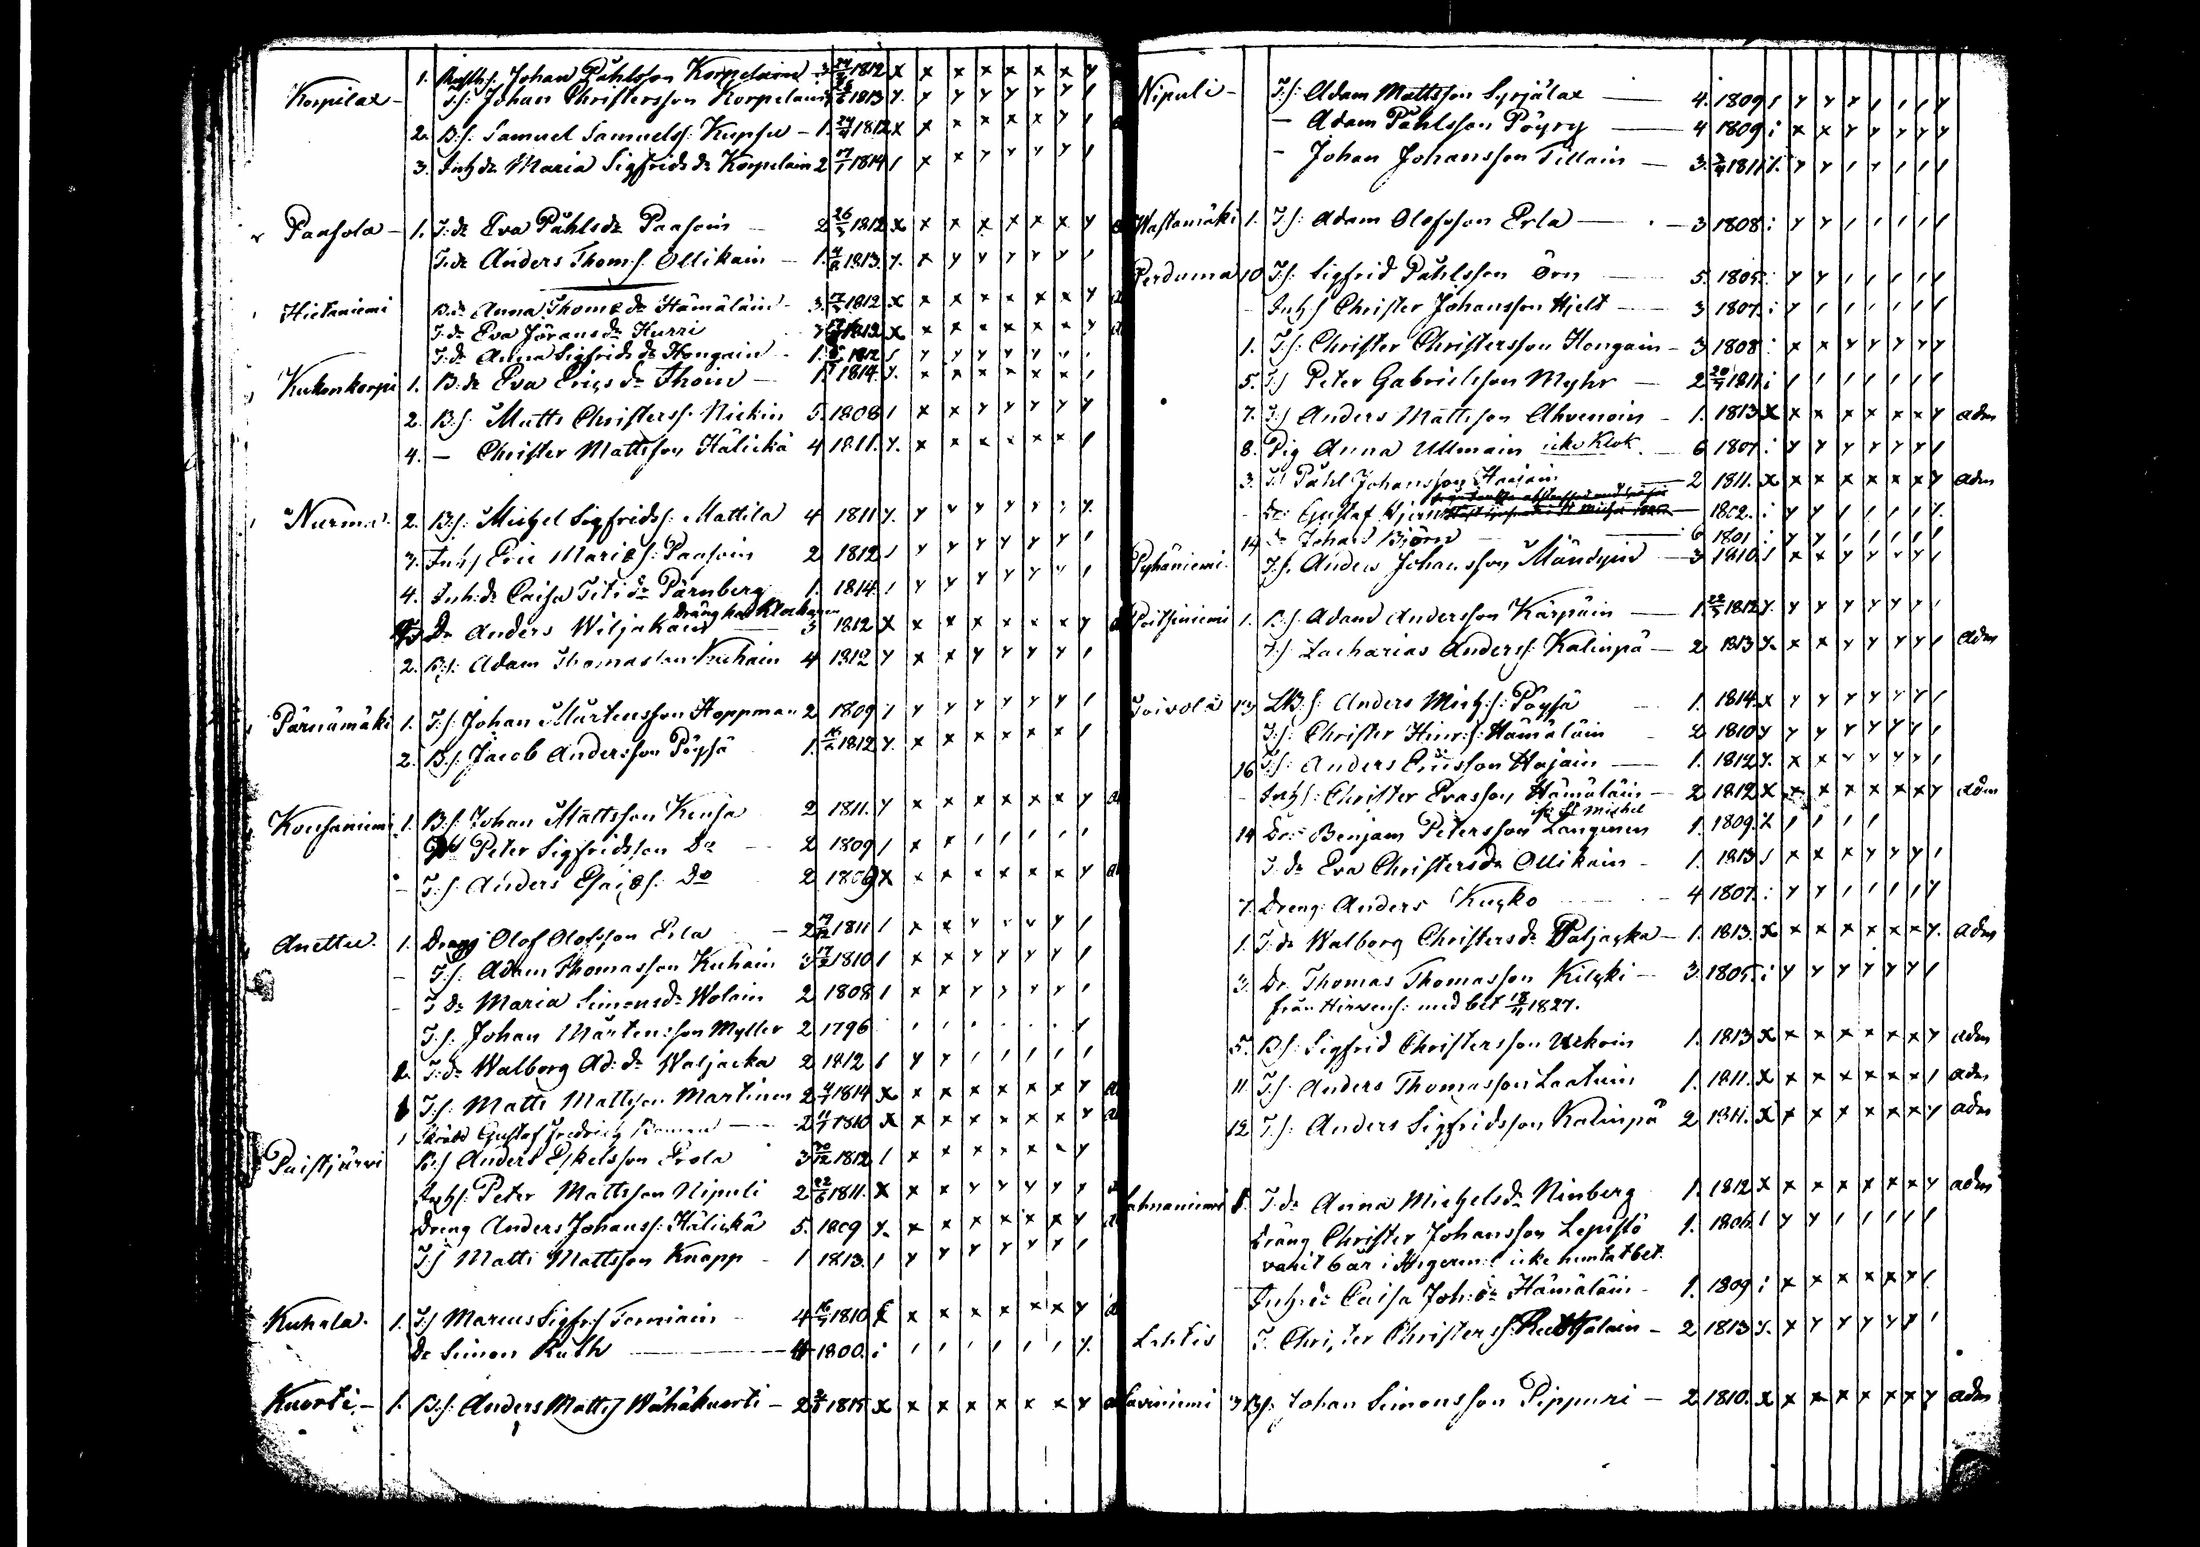 Korpilax - 1. Johan Påhlsson Korpelain 3 1812 x x x x x x x y
J:s: Johan Christersson Korpelain 1813 y. y y y y y y /
2. B:s: Samuel Samuelss: Kupsu - 1. 24/4 1812 x x x x x x y /
3. Inh: dr Maria Sigfrids dr Korpelain 2 17/1 1814 / x x y y y y /
Paasola - 1. J: dr Eva Påhls dr Paasoin 2 26/3 1812 x x x x x x x y
J: dr Anders Thoms: Ollikain - 1. 4/2 1813. y. x y y y y y /
Hietaniemi B: dr Anna Thome dr Hämäläin - 3 1812 x x x x x x x y
J: dr Eva Jörans dr Hurri 1812 x x x x x x x y
J: dr Anna Sigfrids dr Hongain - 1. 1812
Kukonkorpi 1. B: dr Eva Erics dr Thoin - 1. 1814. y. x x x x x x /
2. B:s: Matts Christerss: Nickin 5. 1808 / x x y y y y y
4. - Christer Mattsson Hälickä 4 1811. y. x x x x x x /
Nurma. 2. B:s: Michel Sigfridss: Mattila 4 1811 y.
3. Inh:s Eric Maries: Paasoin 2 1812
4. Inh: dr Caisa Titi dr Pärnberg 1. 1814
Dr Anders Wiljakain dräng hos Klockaren 3 1812 x x x x x x x y
2. B:s: Adam Thomasson Kuhain 4 1812 y x x y y y y /
Pärnämäki 1. J:s Johan Mårtensson Hoppman 2 1809 / y y y y y y /
2. B:s Jacob Andersson Pöysä 1. 16/2 1812 y. x x x x x x /
Kousaniemi 1. B:s: Johan Mattsson Kensa 2 1811. y x x x x x x y
Peter Sigfridsson Do 2 1809 / x x / / / / /
- J:s: Anders Do 2 1809 x x x x x x x y
Anettu. 1. Dreng Olof Olofsson Erla - 2 1811 /
- J:s: Adam Thomasson Kuhain 3 17/2 1810 / x x y y y y /
- J dr Maria Simons dr Wolain 2 1808 / x x y y y y /
J:s: Johan Mårtensson Myller 2 1796
2. J: dr Walborg Ad: dr Waljacka 2 1812 / y y / / / / /
J:s: Matts Mattsson Martinen 2 4/1 1814 x x x x x x x y
Gustaf Fredrich 2 11/7 1810 x x x x x x x y
Paistjärvi B:s Anders Eskelsson Erola 3 30/12 1812 /
Inh:s: Peter Mattsson Nipuli 2 22/6 1811. x x x y y y y x
Dreng Anders Johanss: Hälickä 5. 1809 y. x x x x x x y
J:s Matts Mattsson Knapp - 1 1813. / y y y y y y /
Kuhala. 1. J:s Marcus Sigfr:s Termiain 4 16/5 1810 x x x x x x y
Dr Simon Ruth 1800. i / / / / / / y.
Kuorti. - 1. B:s: Anders Matt:s Wähäkuorti - 2 1815 x x x x x x x y
Nipuli - J:s: Adam Mattsson Syrjälax 4. 1809
- Adam Påhlsson Pöyry 4 1809 i x x y y y y y
- Johan Johansson Tillain - 3. 1811
Wastamäki 1. J:s: Adam Olofsson Erla - 3 1808 i y y / / / / /
Perduma 10 J:s: Sigfrid Påhlsson Örn 5. 1805. i y y / / / / /
Inh:s Christer Johansson Hjelt 3 1807. i y y / / / / /
1. J:s: Christer Christersson Hongain - 3 1808 i x x y y y y y
5. J:s Peter Gabrielsson Myhr - 2 20/7 1811 i / / / / / / /
7. J:s Anders Mattsson Ahvenoin - 1. 1813 x x x x x x x y adm
8. Pig Anna Ullmain icke Klok. - 6 1807. i y y y y y y y
3. J:s Påhl Johansson Haajain 2 1811. x x x x x x x y adm
Dr: Gustaf 1802. i
14 Dr Johan Björn 6 1801 i
Pyhäniemi. J:s. Anders Johansson Mändynin - 3 1810.
Poitsiniemi 1. B:s: Adam Andersson Kärpäin 1. 1812 y. y y y y y y /
J:s Zacharias Anderss: Kalinpä - 2 1813 y. x x y y y y / adm
Toivola 13 Anders Mich:s: Pöysä 1. 1814. x y y y y y y /
J:s: Christer Hinr:s: Hämäläin 2 1810 y y y y y y y /
16 J:s: Anders Ericsson Hajain 1. 1812 y. x x y y y y /
- Inh:s: Christer Evasson Hämäläin - 2 1812 x x x x x x x y adm
14 Dr: Benjam Petersson Langinen St Michel 1. 1809. / / / /
J: dr Eva Christers dr Ollikain - 1. 1813
7. Dreng Anders Kucko - 4 1807. i y y / / / / y
1. J: dr Walborg Christers dr Paljacka - 1. 1813. x x x x x x x y. adm
3. Dr. Thomas Thomasson Kilcki - 3. 1805. i y y y y y y /
från Hirvens: med bet 1827.
5. B:s: Sigfrid Christersson Uckoin 1. 1813 x x x x x x x y adm
11 J:s: Anders Thomasson Laatuin 1. 1811. x x x x x x x / adm
12 J:s: Anders Sigfridsson Kalinpä 2 1811. x x x x x x x y adm
ahnaniemi 8. J: dr Anna Michels dr Ninberg 1. 1812 x x x x x x x y adm
Dräng Christer Johansson Lepistö 1. 1806. / y y / / / / /
varit 6 år i Ingerm: icke hemtat bet.
Inh: dr Caisa Joh: dr Hämäläin - 1. 1809 i x x x x x y /
J. Christer Christers:s - 2 1813 y. y y y y y y /
aviniemi 3 B:s: Johan Simonsson Pippuri - 2 1810. x x x x x x x y adm